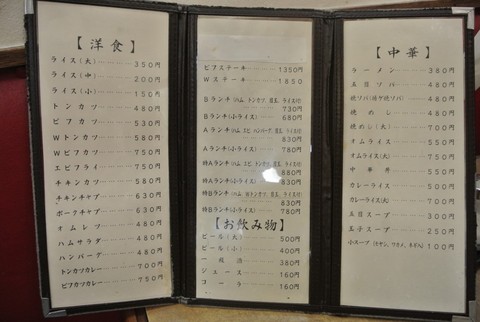 【洋食】
ライス(大) 350円
ライス(中) 200円
ライス(小) 150円
トンカツ 480円
ビフカツ 530円
Wトンカツ 580円
Wビフカツ 750円
エビフライ 750円
チキンカツ 580円
チキンキャブ 630円
ポークキャブ 630円
オムレツ 480円
ハムサラダ 480円
ハンバーグ 480円
トンカツカレー 700円
ビフカツカレー 750円
ビフステーキ 1350円
Wステーキ 1850
Bランチ(ハム、トンカツ、目玉、ライス付)
730円
Bランチ(小ライス) 680円
Aランチ(ハム、エビ、ハンバーグ、目玉、ライス付)
830円
Aランチ(小ライス) 780円
特Aランチ(ハム、エビ、トンカツ、目玉、ライス付)
880円
特Aランチ(小ライス) 830円
特Bランチ(ハム、Wトンカツ、目玉、ライス付)
830円
特Bランチ(小ライス) 780円
【お飲み物】
ビール(大) 500円
ビール(小) 400円
一級酒
ジュース 160円
コーラ 160円
【中華】
ラーメン 380円
五目ソバ 480円
焼ソバ(揚ゲ焼ソバ) 480円
焼めし 480円
焼めし(大) 700円
オムライス 550円
オムライス(大) 750円
中華丼 550円
カレーライス 500円
カレーライス(大) 700円
五目スープ 300円
玉子スープ 250円
小スープ 100円